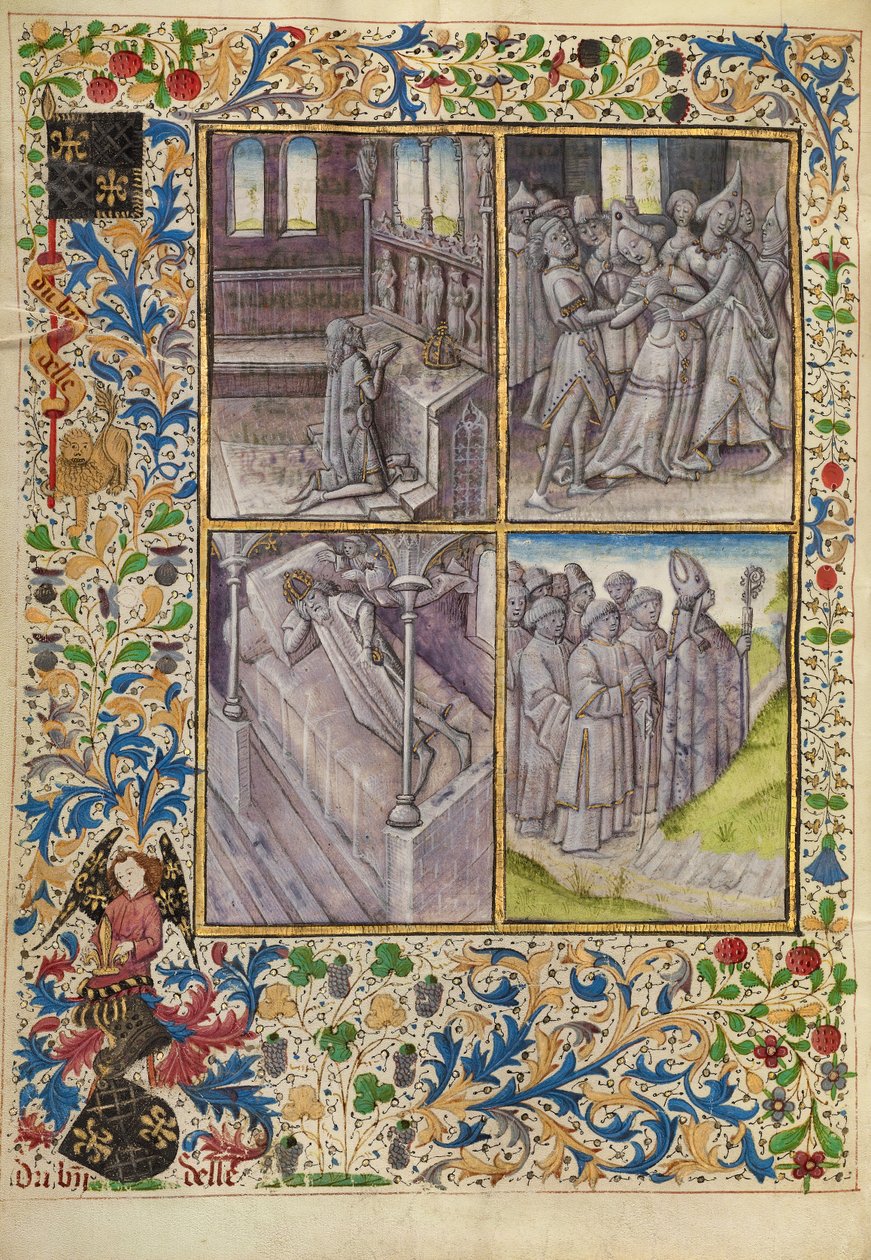 du bij
delle
du bij delle